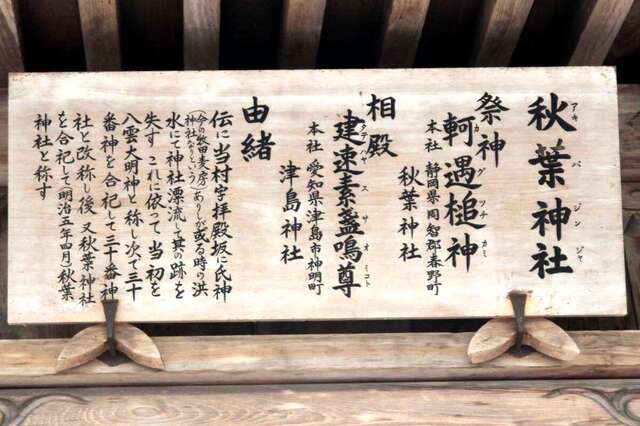 秋葉神社
アキバジンジャ
祭神
軻遇槌神
カグツチカミ
本社 静岡県周智郡春野町
秋葉神社
相殿
建速素盞嗚尊
タテハヤスサオミコト
本社 愛知県津島市神明町
津島神社
由緒
伝に当村字拝殿坂に氏神
(今の牧田麦房神社なりという)ありしが或る時の洪
水にて神社漂流して其の跡を
失す これに依って当初を
八雲大明神と称し次で三十
番神を合祀して三十番神
社と改称し後 又秋葉神社
を合祀して(明治五年四月)秋葉
神社と称す